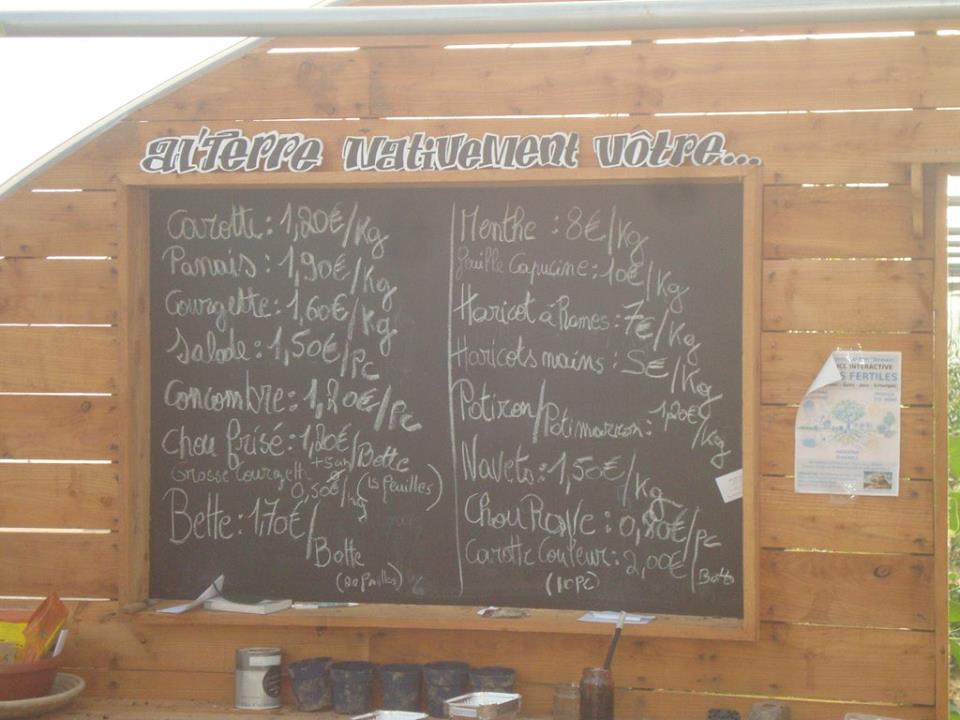 al'Terre Nativement vôtre...
Carotte : 1,20€/Kg
Panais : 1,90€/Kg
Courgette : 1,60€/Kg
Salade : 1,50€/Pc
Concombre : 1,20€/Pc
Chou frisé : 1,20€/Botte
(15 feuilles)
Grosse Courgette
0,50€/kg
Bette : 1,70€/
Botte
Menthe : 8€/Kg
feuille Capucine : 10€/Kg
Haricot à Rames : 7€/Kg
Haricots mains : 5€/Kg
Potiron/Potimarron : 1,20€/Kg
Navets : 1,50€/Kg
Chou Rave : /Pc
Carotte Couleur : 2,00€/Botte
INTERACTIVE
FERTILES